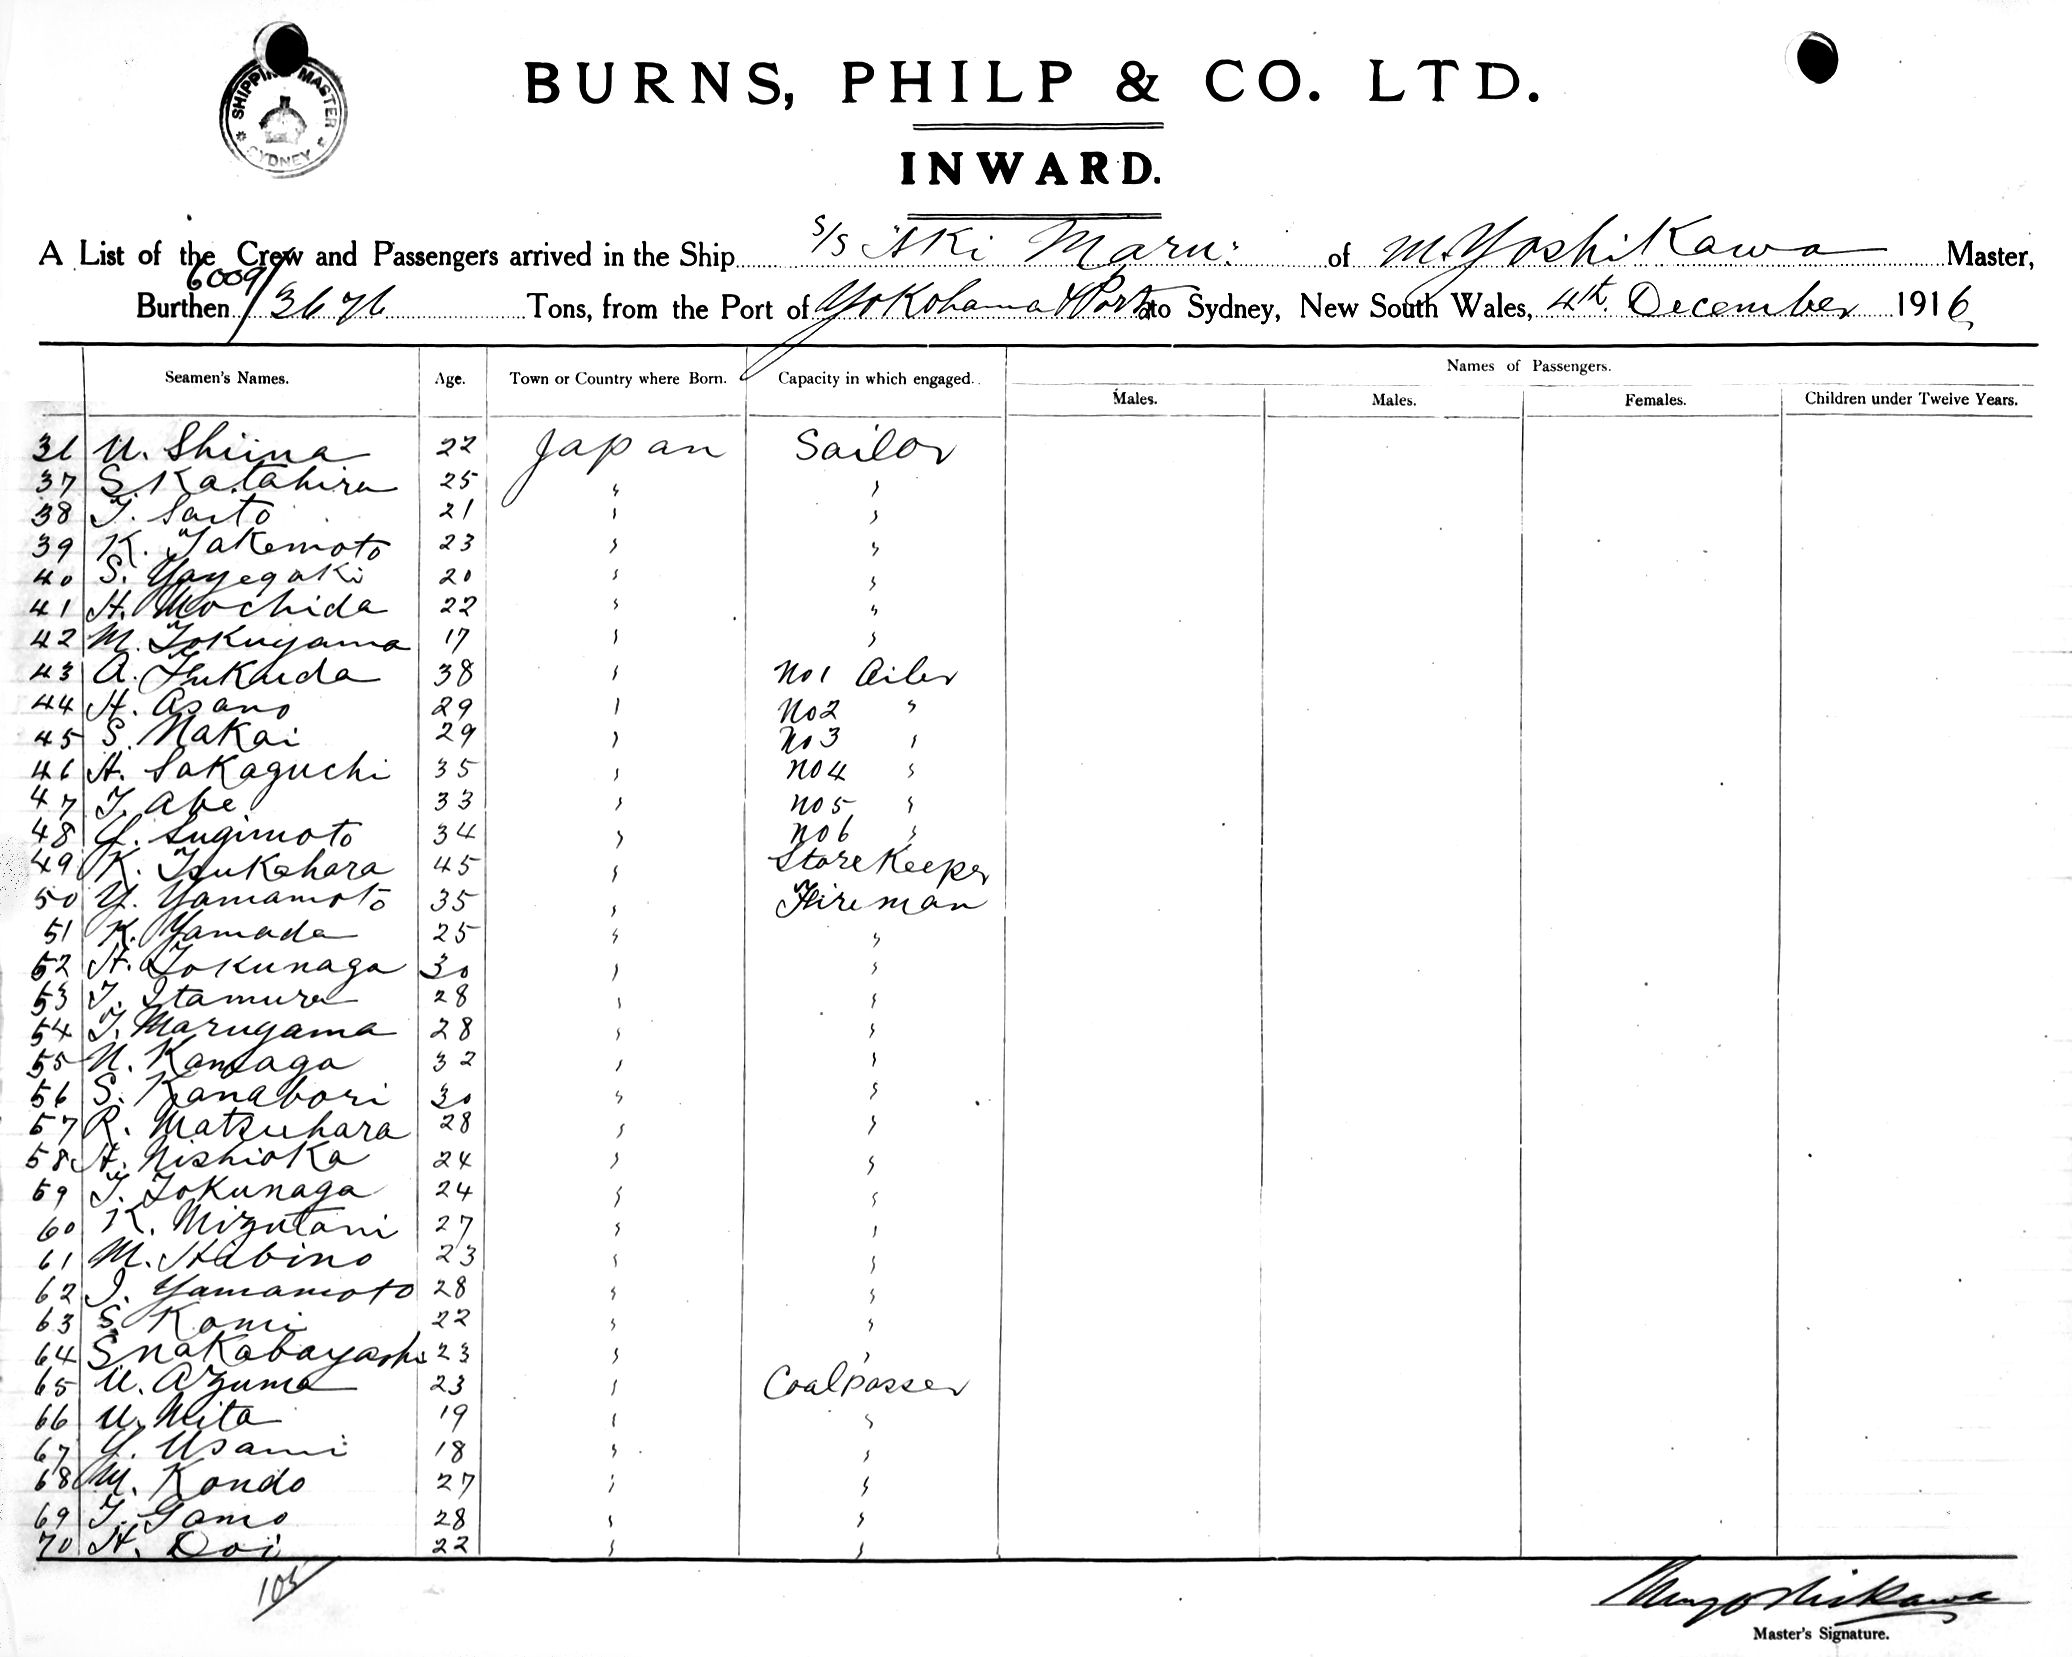 SHIPPING MASTER
SYDNEY
BURNS, PHILP & CO. LTD.
INWARD.
A List of the Crew and Passengers arrived in the Ship S/S "Aki Maru" of M. Yoshikawa Master,
6009/3676
Burthen Tons, from the Port of Yokohama & Ports to Sydney, New South Wales, 4th December 1916
Seamen's Names. Age. Town or Country where Born. Capacity in which engaged. Names of Passengers.
Males. Males. Females. Children under Twelve Years.
36 U. Shiina 22 Japan Sailor
37 S. Katahira 25 " "
38 T. Saito 21 " "
39 K. Takemoto 23 " "
40 S. Yayegaki 20 " "
41 H. Mochida 22 " "
42 M. Tokuyama 17 " "
43 A. Fukuda 38 " No1 Oiler
44 H. Asano 29 " No2 "
45 S. Nakai 29 " No3 "
46 H. Sakaguchi 35 " No4 "
47 T. Abe 33 " No5 "
48 Y. Sugimoto 34 " No6 "
49 K. Tsukahara 45 " Storekeeper
50 Y. Yamamoto 35 " Fireman
51 K. Yamada 25 " "
52 H. Tokunaga 30 " "
53 T. Itamura 28 " "
54 T. Maruyama 28 " "
55 N. 32 " "
56 S. Kanabori 30 " "
57 R. Matsuhara 28 " "
58 H. Nishioka 24 " "
59 T. Tokunaga 24 " "
60 K. Mizutani 27 " "
61 M. Hibino 23 " "
62 I. Yamamoto 28 " "
63 S. Komi 22 " "
64 S nakabayashi 23 " "
65 U. Azuma 23 " Coalpasser
66 U. Nita 19 " "
67 Y. Usami 18 " "
68 M. Kondo 27 " "
69 T. Gamo 28 " "
70 H. Doi 22 " "
Master's Signature.